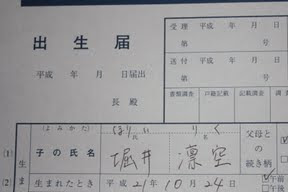 出生届
平成 年 月 日届出
長 殿
受理 平成 年 月
第 号
送付 平成 年 月
第 号
書類調査 戸籍記載 記載調査 調
(よみかた) ほり い り く
(1) 子の氏名 堀井 凛空
父母と
の続き柄
生まれたとき 平成 21年10月24日
午前
午後